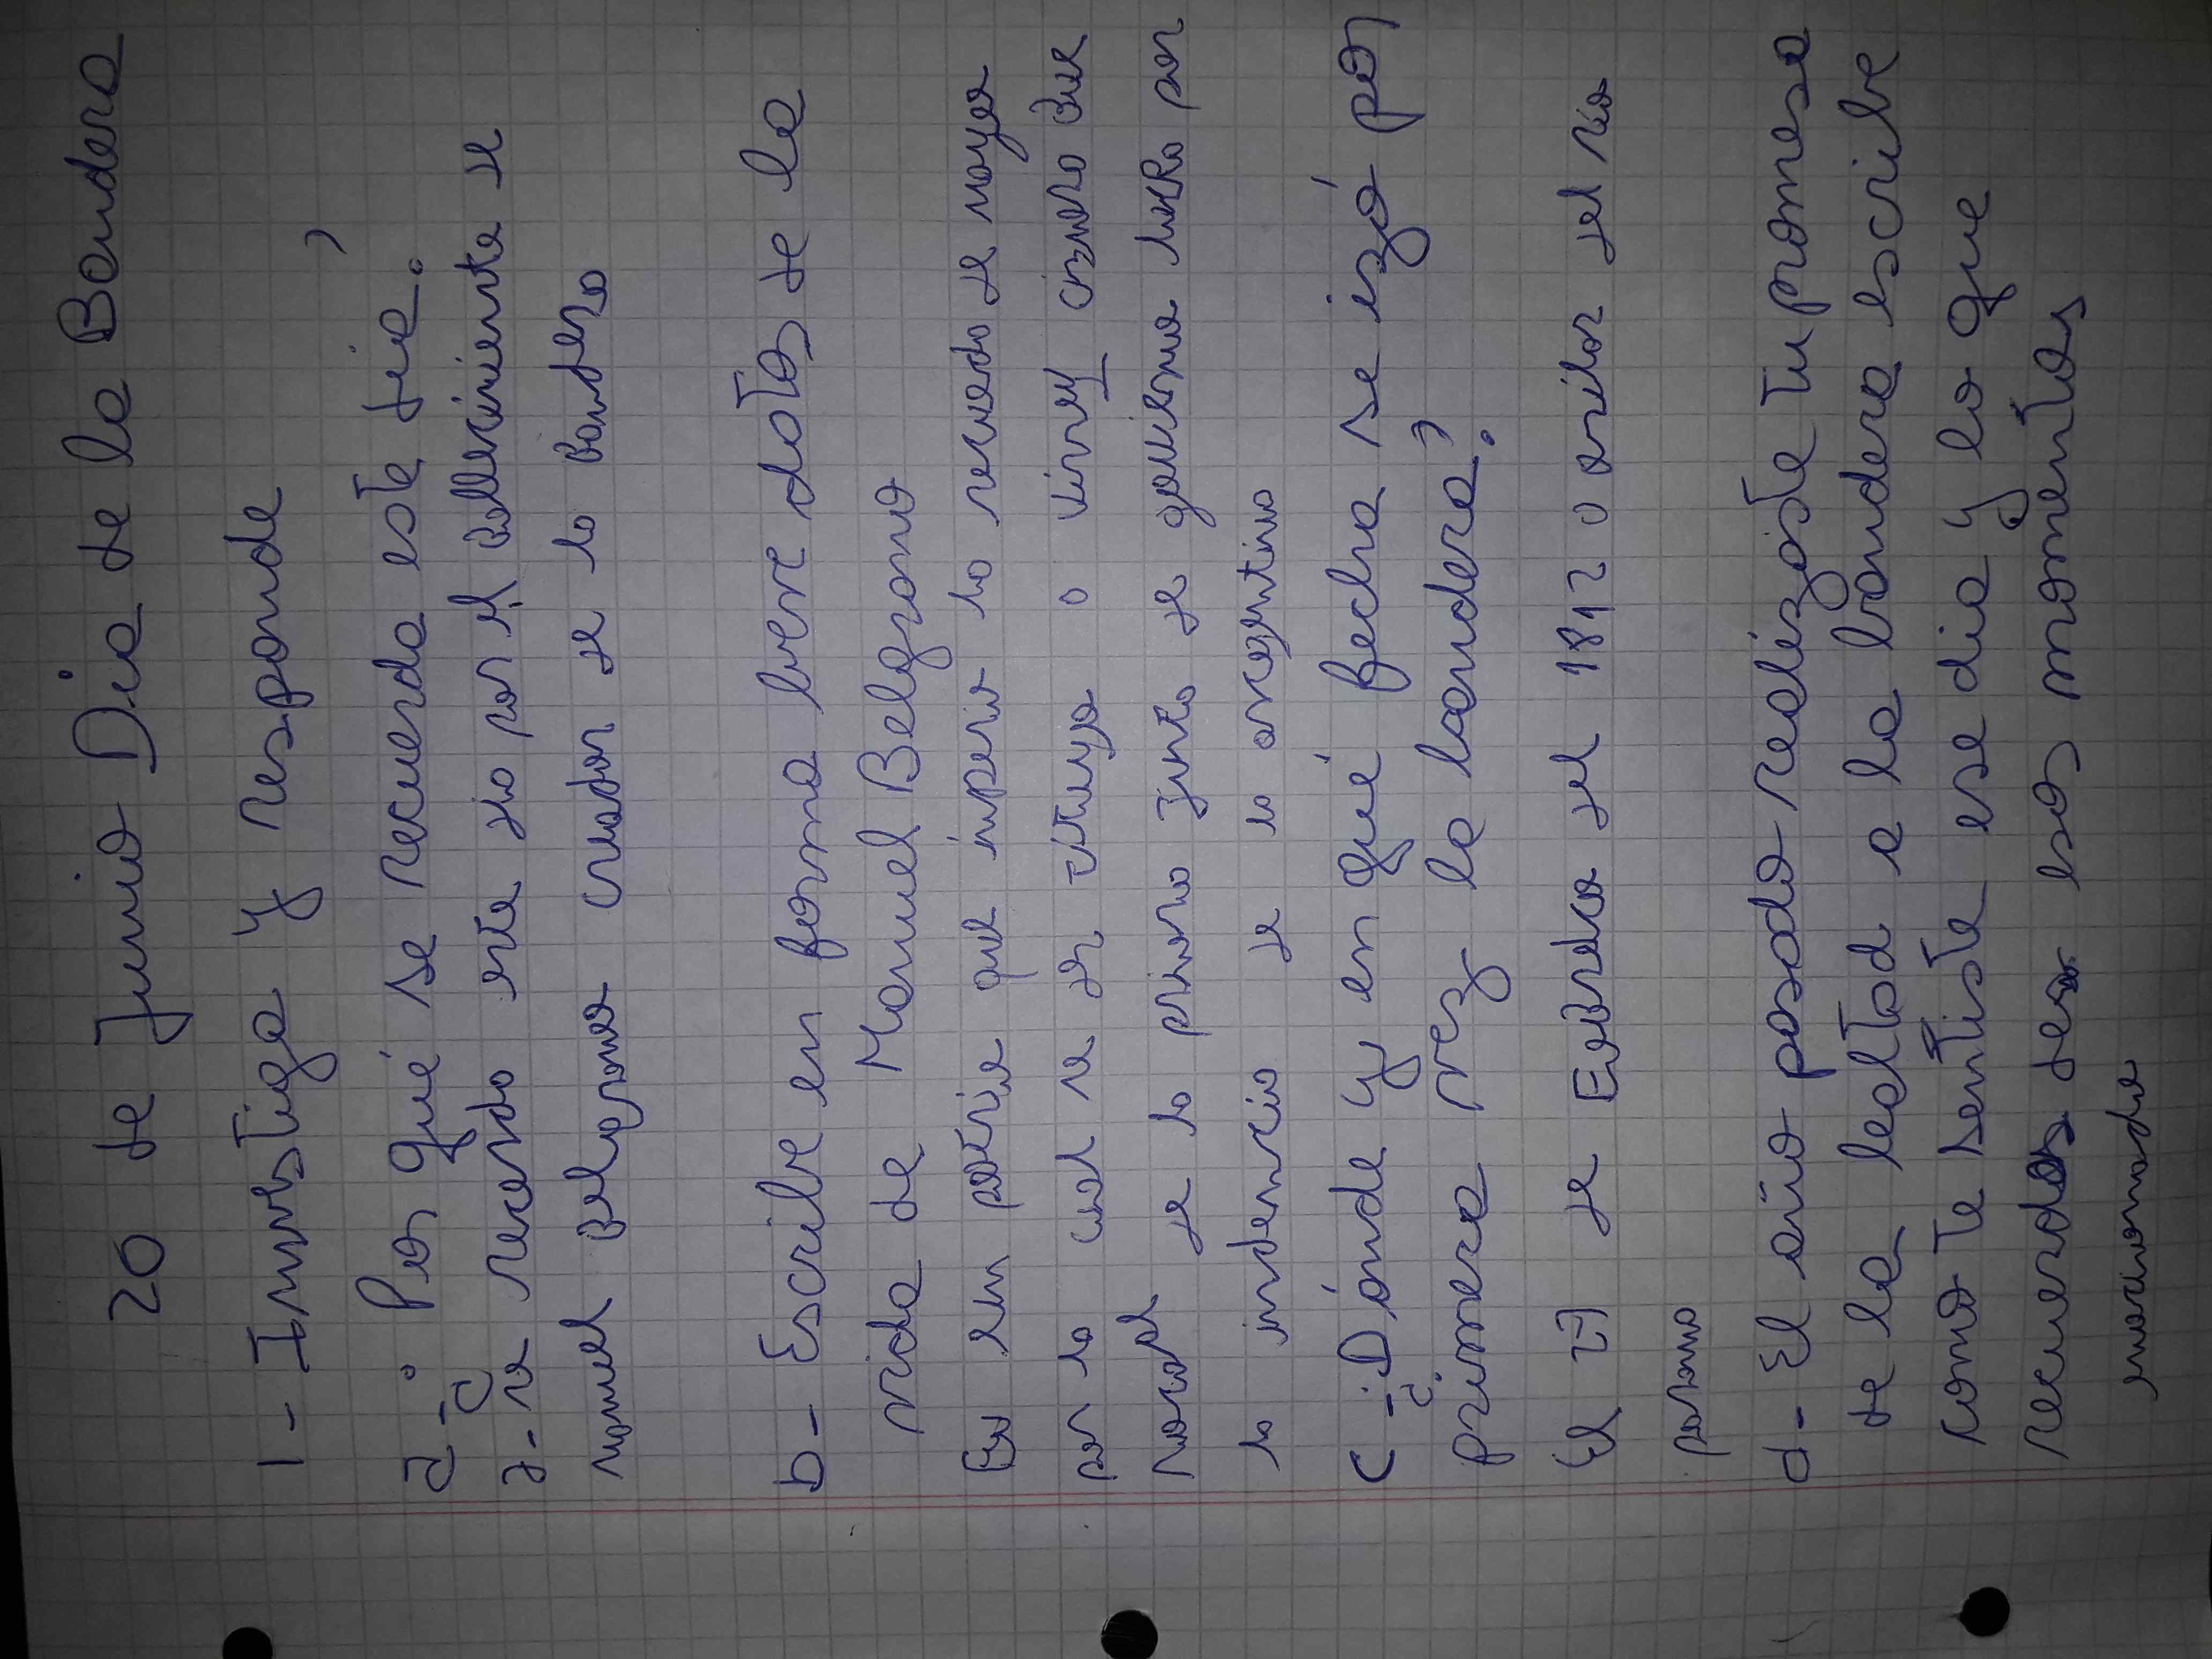 20 de Junio Dia de la Bandera
1- Investiga y responde
a- ¿Por qué se recuerda este dia?
a- se recerda este dia por el fallecimiento de
manuel belgrano creador de la bandera
b- Escribe en forma breve datos de la
vida de Manuel Belgrano
Fue un patrio que
por la cual
de la primera junta de gobierno lucho por
la indencia de la argentina
C- ¿Dónde y en qué fecha se izó por
primera vez la bandera?
El 27 de Febrero del 1812 a orillas del rio
parana
d- El año pasado realizaste tu promesa
de la lealtad a la bandera escribe
como te sentiste ese dia y lo que
recuerdas de esos momentos
emocionado